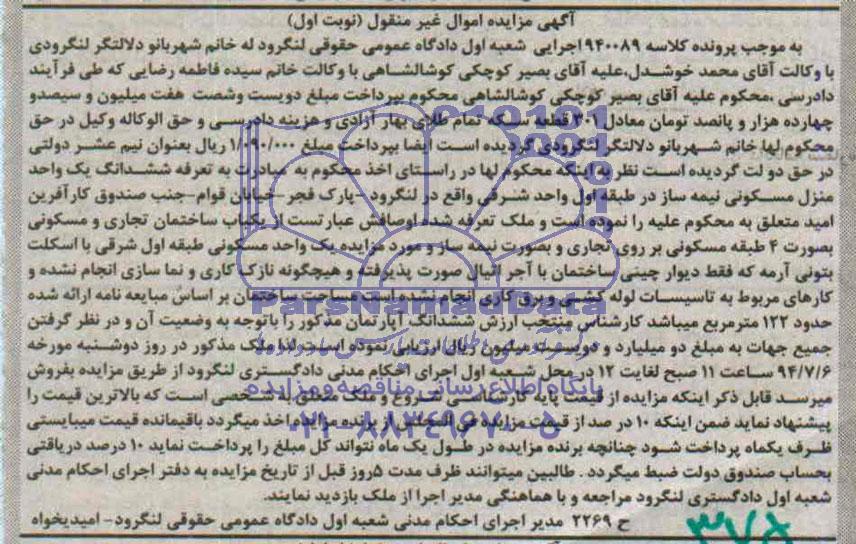 آگهی مزایده اموال غیر منقول (نوبت اول)
به موجب پرونده کلاسه ۹۴۰۰۸۹ اجرایی شعبه اول دادگاه عمومی حقوقی لنگرود له خانم شهربانو دلالتگر لنگرودی
با وکالت آقای محمد خوشدل،علیه آقای بصیر کوچکی کوشالشاهی با وکالت خانم سیده فاطمه رضایی که طی فرآیند
دادرسی ،محکوم علیه آقای بصیر کوچکی کوشالشاهی محکوم بپرداخت مبلغ دویست وشصت هفت میلیون و سیصدو
چهارده هزار و پانصد تومان معادل ۳۰۱ قطعه سکه تمام طلای بهار آزادی و هزینه دادرسی و حق الوکاله وکیل در حق
محکوم لها خانم شهربانو دلالتگر لنگرودی گردیده است ایضا بپرداخت مبلغ ۱/۰۹۰/۰۰۰ ریال بعنوان نیم عشر دولتی
در حق دو لت گردیده است نظر به اینکه محکوم لها در راستای اخذ محکوم به مبادرت به تعرفه ششدانگ یک واحد
منزل مسکونی نیمه ساز در طبقه اول واحد شرقی واقع در لنگرود -پارک فجر -خیابان قوام-جنب صندوق کارآفرین
امید متعلق به محکوم علیه را نموده است و ملک تعرفه شده اوصافش عبارتست از یکباب ساختمان تجاری و مسکونی
بصورت ۴ طبقه مسکونی بر روی تجاری و بصورت نیمه ساز و مورد مزایده یک واحد مسکونی طبقه اول شرقی با اسکلت
بتونی آرمه که فقط دیوار چینی ساختمان با آجر انبال صورت پذیرفته و هیچگونه نازک کاری و نما سازی انجام نشده و
کارهای مربوط به تاسیسات لوله کشی و برق کاری انجام نشده است مساحت ساختمان بر اساس مبایعه نامه ارائه شده
حدود ۱۲۲ مترمربع میباشد کارشناس منتخب ارزش ششدانگ آپارتمان مذکور را باتوجه به وضعیت آن و در نظر گرفتن
جمیع جهات به مبلغ دو میلیارد و دویست میلیون ریال ارزیابی نموده است لذا ملک مذکور در روز دوشنبه مورخه
۹۴/۷/۶ ساعت ۱۱ صبح لغایت ۱۲ در محل شعبه اول اجرای احکام مدنی دادگستری لنگرود از طریق مزایده بفروش
میرسد قابل ذکر اینکه مزایده از قیمت پایه کارشناسی شروع و ملک متعلق به شخصی است که بالاترین قیمت را
پیشنهاد نماید ضمن اینکه ۱۰ در صد از قیمت مزایده فی المجلس از برنده مزایده اخذ میگردد باقیمانده قیمت میبایستی
ظرف یکماه پرداخت شود چنانچه برنده مزایده در طول یک ماه نتواند کل مبلغ را پرداخت نماید ۱۰ درصد دریافتی
بحساب صندوق دولت ضبط میگردد . طالبین میتوانند ظرف مدت ۵روز قبل از تاریخ مزایده به دفتر اجرای احکام مدنی
شعبه اول دادگستری لنگرود مراجعه و با هماهنگی مدیر اجرا از ملک بازدید نمایند.
ح ۲۲۶۹ مدیر اجرای احکام مدنی شعبه اول دادگاه عمومی حقوقی لنگرود- امیدیخواه
ParsNamadData
پایگاه اطلاع رسانی مناقصه و مزایده
۰۲۱-۸۸۳۴۹۶۷۰-۵